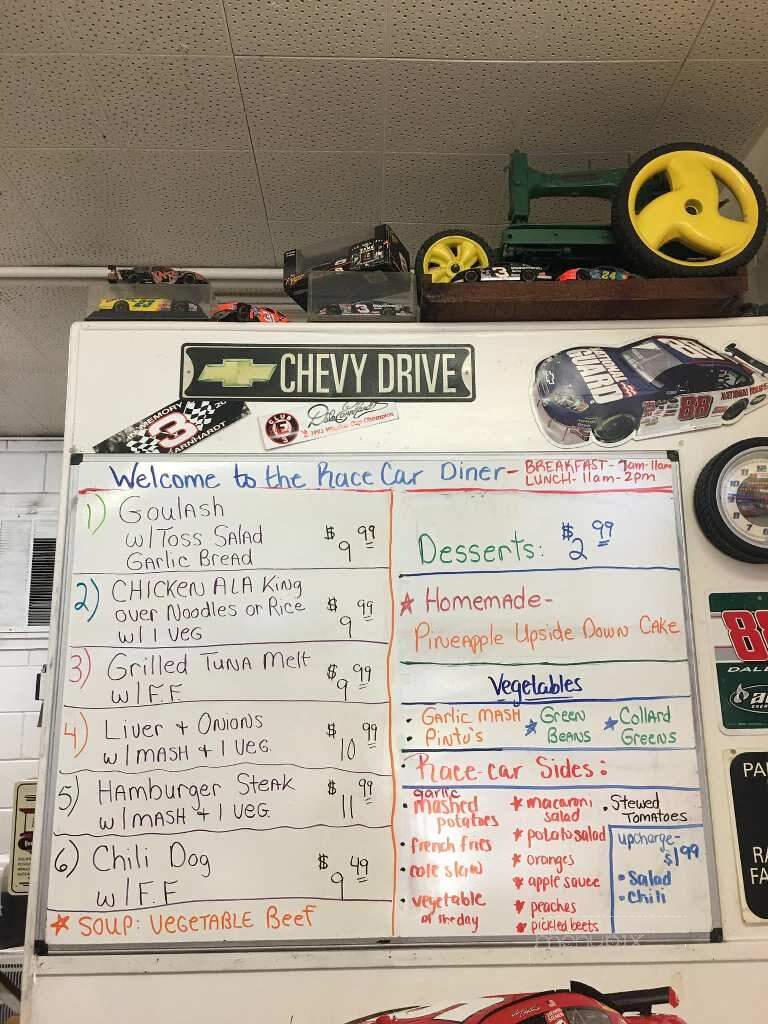 3
24
3
CHEVY DRIVE
NATIONAL
GUARD
88
IN MEMORY
3
EARNHARDT
CLUB
E
Dale Earnhardt
Welcome to the Race Car Diner - BREAKFAST - 7am-11am
LUNCH - 11am-2pm
1) Goulash
w/Toss Salad
Garlic Bread
$9.99
2) CHICKEN ALA King
over Noodles or Rice
w/ 1 VEG
$9.99
3) Grilled Tuna Melt
w/ F.F.
$9.99
4) Liver + Onions
w/ MASH + 1 VEG.
$10.99
5) Hamburger Steak
w/ MASH + 1 VEG.
$11.99
6) Chili Dog
w/ F.F
$9.49
★ SOUP: VEGETABLE Beef
Desserts: $2.99
★ Homemade-
Pineapple Upside Down Cake
Vegetables
• Garlic MASH
• Pinto's
★ Green
Beans
★ Collard
Greens
• Race-car Sides:
• garlic
mashed
potatoes
• french fries
• cole slaw
• vegetable
of the day
★ macaroni
salad
★ potato salad
★ oranges
★ apple sauce
★ peaches
★ pickled beets
• Stewed
Tomatoes
upcharge-
$1.99
• Salad
• Chili
88
DALE
PA
RA
FA
menupix